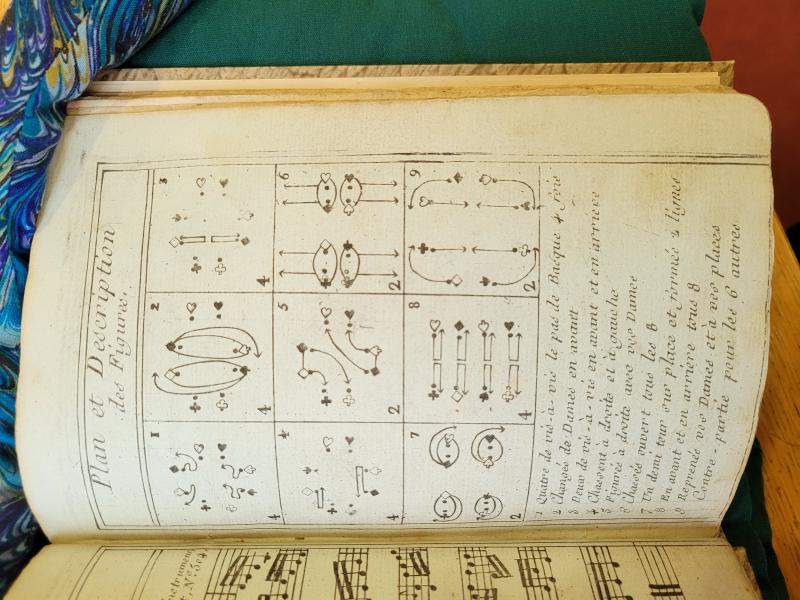 Plan et Description
des Figures.
1 2 3
4 4 4
4 5 6
4 2 2
7 8 9
2 4 2
1 Quatre de vis-à-vis le pas de Basque 4 fois
2 Changés de Dames en avant
3 Deux de vis-à-vis en avant et en arriere
4 Chassent à droite et à gauche
5 Figurés à droite avec vos Dames
6 Chassés ouvert tous les 8
7 Un demi tour sur place et formés 4 lignes
8 En avant et en arriére tous 8
9 Reprenés vos Dames et à vos places
Contre-partie pour les 6 autres